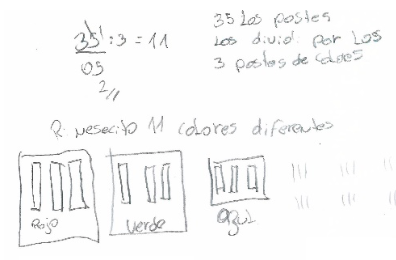 35 : 3 = 11
05
2//
35 Los postes
Los dividi por Los
3 postes de colores
R: nesecito 11 colores diferentes
Rojo
Verde
azul